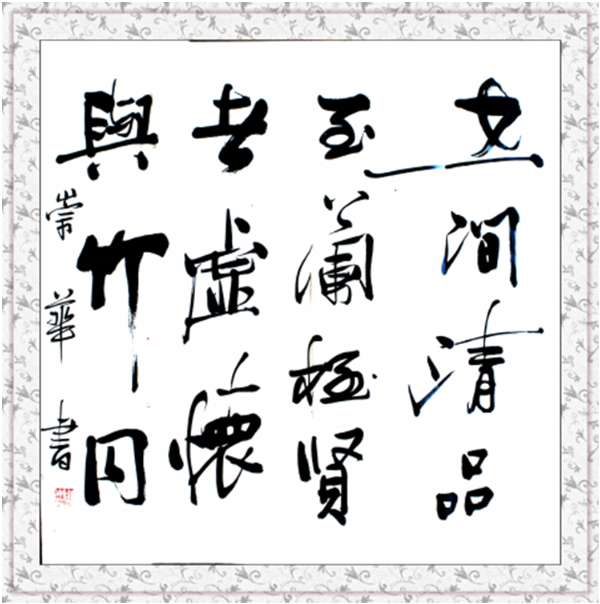 世間清品
至蘭極賢
者虛懷
與竹同
崇華書